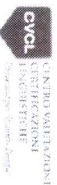 CVCL
CENTRO VALUTAZIONI
CERTIFICAZIONI
LINGUISTICHE